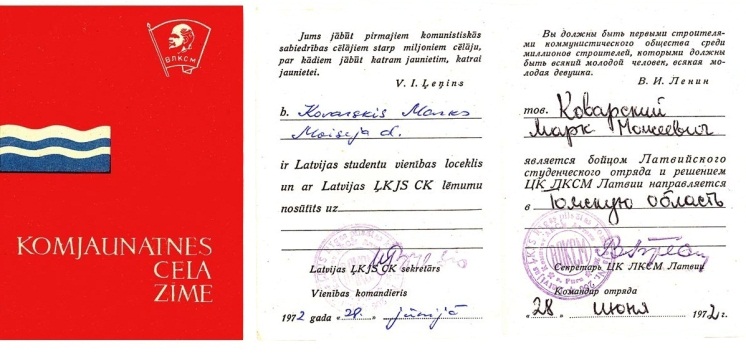 ВЛКСМ
KOMJAUNATNES
CEĻA
ZĪME
Jums jābūt pirmajiem komunistiskās
sabiedrības cēlājiem starp miljoniem cēlāju,
par kādiem jābūt katram jaunietim, katrai
jaunietei.
V. I. Ļeņins
b. Kovarskis Marks
Moiseja d.
ir Latvijas studentu vienības loceklis
un ar Latvijas ĻKJS CK lēmumu
nosūtīts uz
Latvijas ĻKJS CK sekretārs
Vienības komandieris
1972 gada „28.“ jūnijā
Вы должны быть первыми строителя-
ми коммунистического общества среди
миллионов строителей, которыми должны
быть всякий молодой человек, всякая мо-
лодая девушка.
В. И. Ленин
тов. Коварский
Марк Моисеевич
является бойцом Латвийского
студенческого отряда и решением
ЦК ЛКСМ Латвии направляется
в Томскую область
Секретарь ЦК ЛКСМ Латвии
Командир отряда
„28“ июня 1972 г.